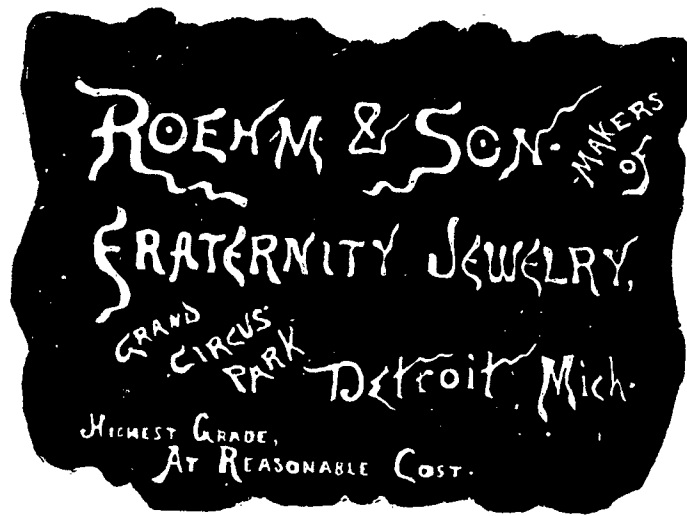 ROEHM & SON. MAKERS OF
FRATERNITY JEWELRY,
GRAND CIRCUS PARK Detroit, Mich.
HIGHEST GRADE,
AT REASONABLE COST.